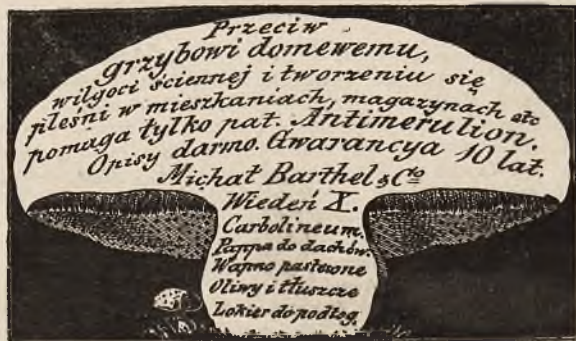 Przeciw
grzybowi domewemu,
wilgoci ściennej i tworzeniu się
pleśni w mieszkaniach, magazynach etc
pomaga tylko pat. Antimerulion.
Opisy darmo. Gwarancya 10 lat.
Michał Barthel & Cto
Wiedeń X.
Carbolineum.
Pappa do dachów.
Wapno pastwone
Oliwy i tłuszcze
Lokier do podłog.